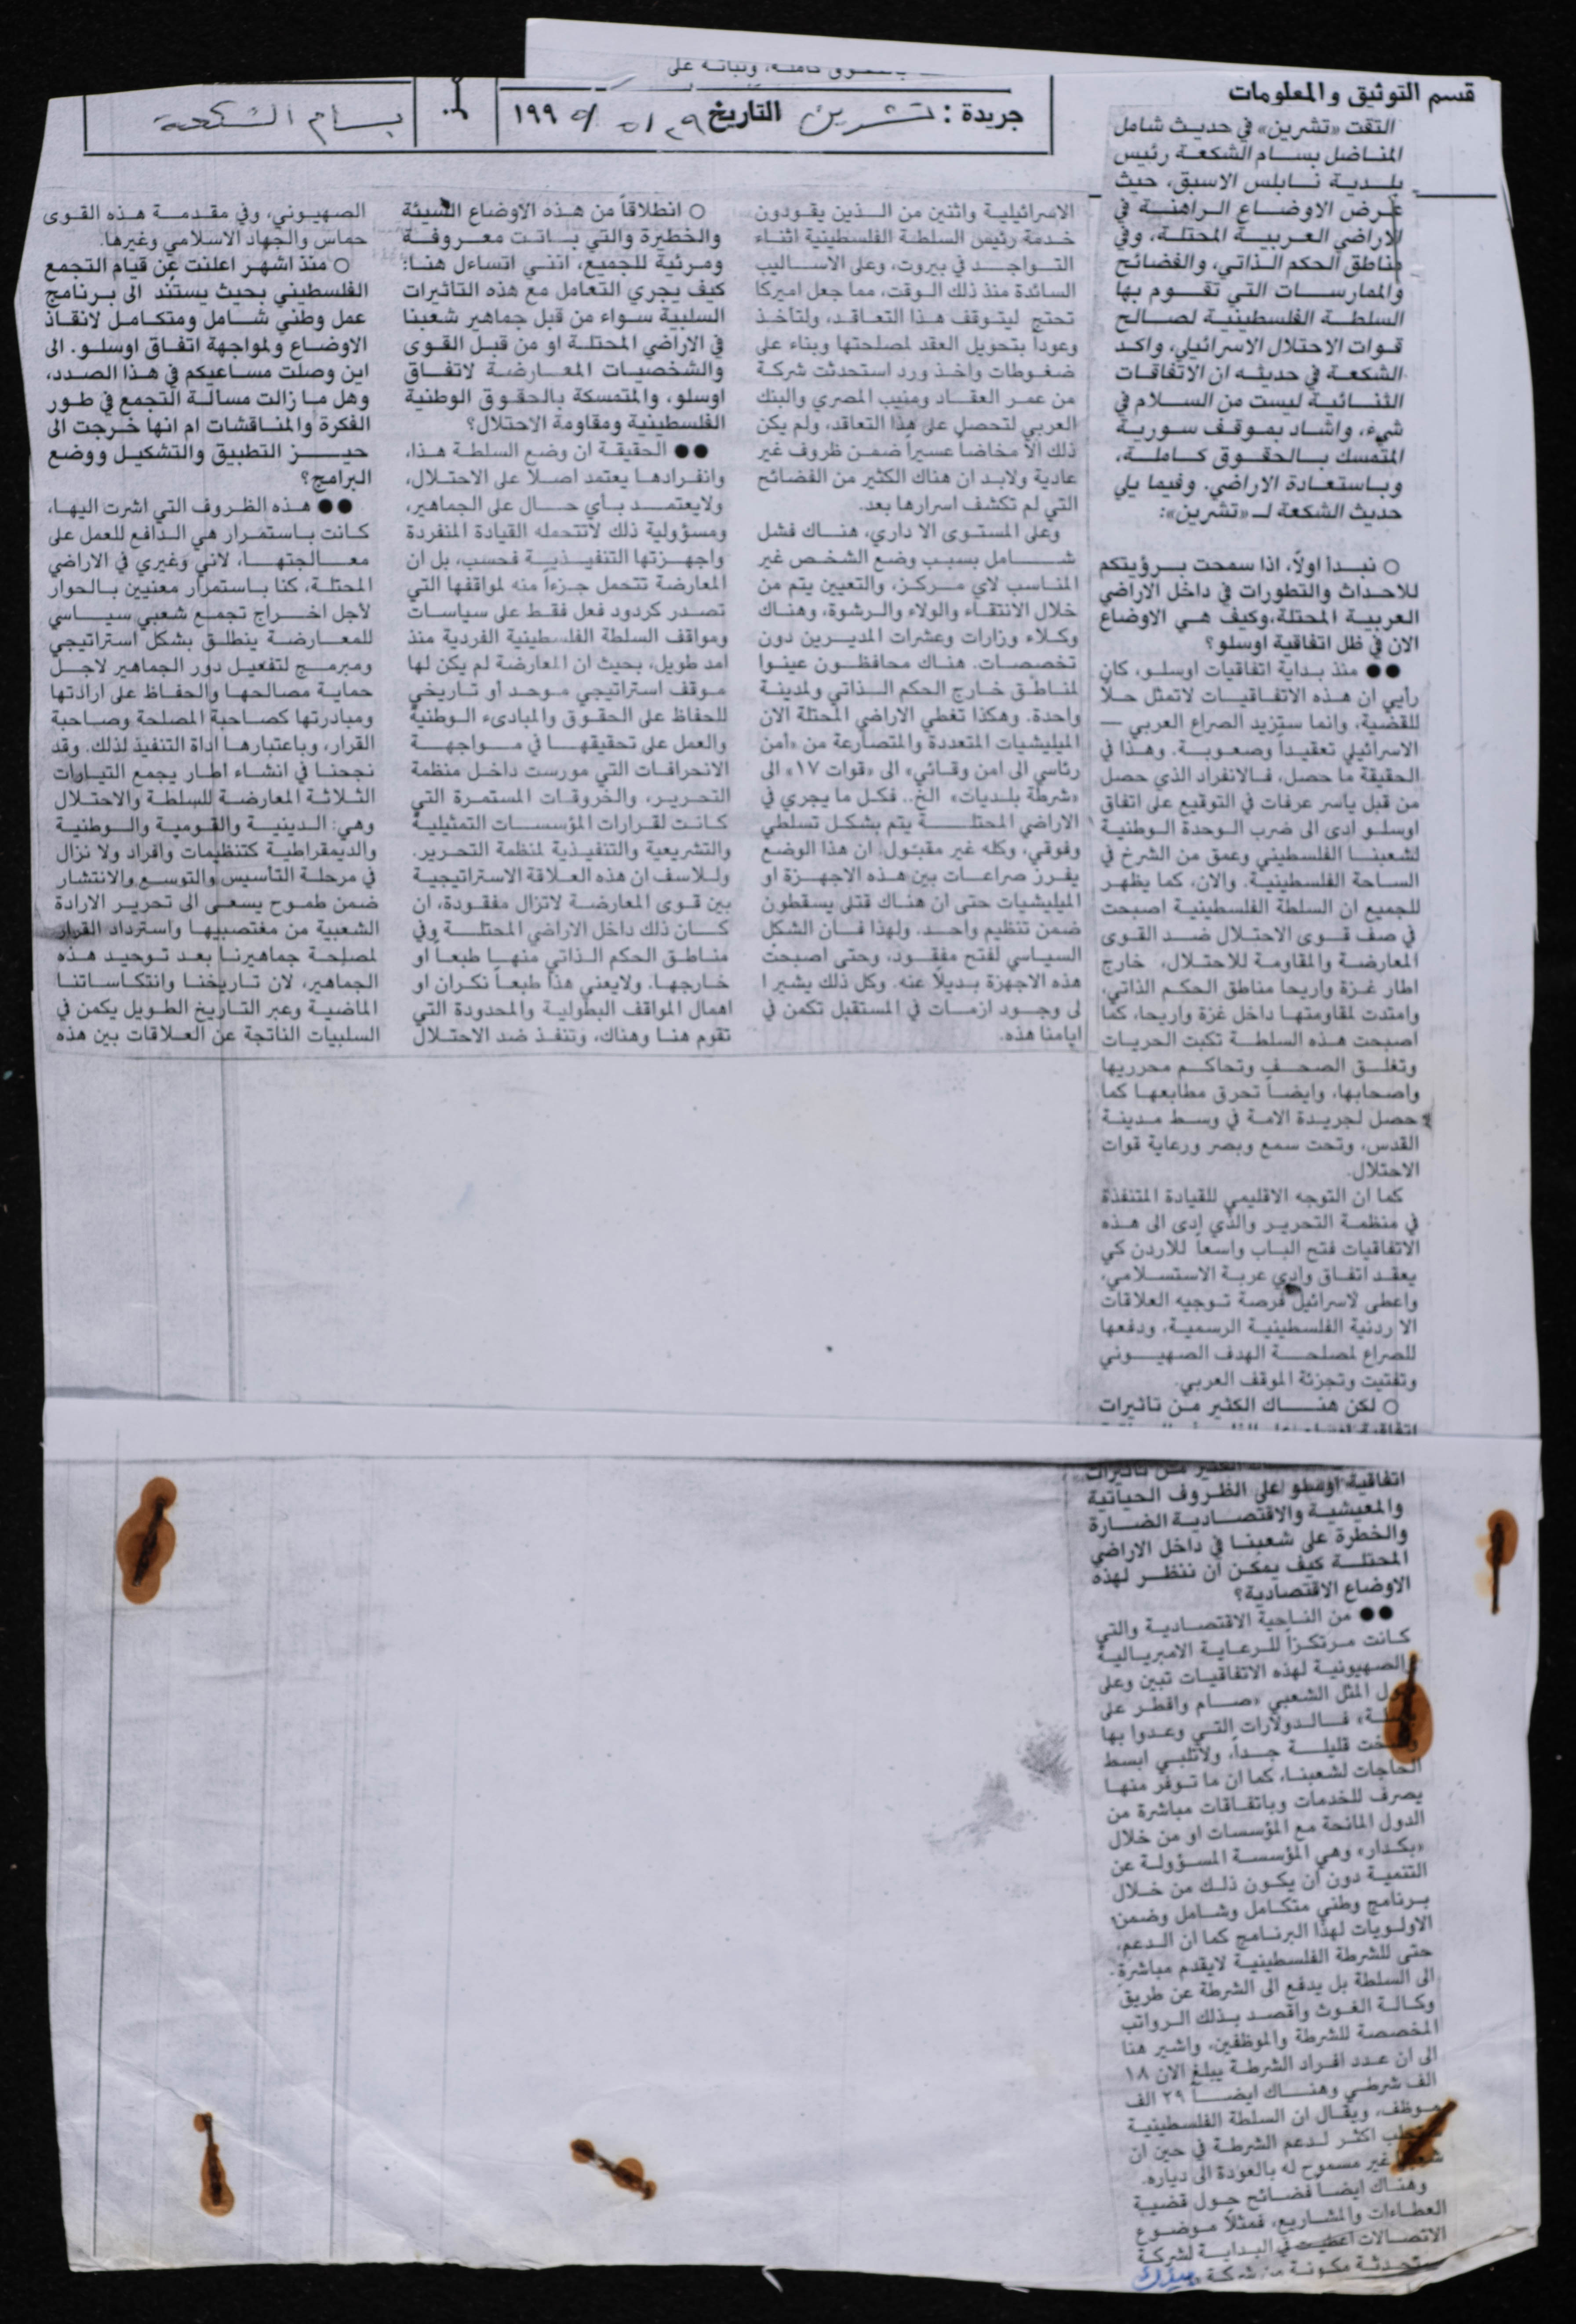 قسم التوثيق والمعلومات
جريدة : تشرين التاريخ ٢٩/٥/١٩٩٥
بسام الشكعة
التقت «تشرين» في حديث شامل
المناضل بسام الشكعة رئيس
بلدية نابلس الاسبق، حيث
عرض الاوضاع الراهنة في
الاراضي العربية المحتلة، وفي
مناطق الحكم الذاتي، والفضائح
والممارسات التي تقوم بها
السلطة الفلسطينية لصالح
قوات الاحتلال الاسرائيلي، واكد
الشكعة في حديثه ان الاتفاقات
الثنائية ليست من السلام في
شيء، واشاد بموقف سورية
المتمسك بالحقوق كاملة،
وباستعادة الاراضي. وفيما يلي
حديث الشكعة لـ «تشرين»:
○ نبدأ اولاً، اذا سمحت برؤيتكم
للاحداث والتطورات في داخل الاراضي
العربية المحتلة، وكيف هي الاوضاع
الان في ظل اتفاقية اوسلو؟
●● منذ بداية اتفاقيات اوسلو، كان
رأيي ان هذه الاتفاقيات لاتمثل حلاً
للقضية، وانما ستزيد الصراع العربي —
الاسرائيلي تعقيداً وصعوبة. وهذا في
الحقيقة ما حصل، فالانفراد الذي حصل
من قبل ياسر عرفات في التوقيع على اتفاق
اوسلو ادى الى ضرب الوحدة الوطنية
لشعبنا الفلسطيني وعمق من الشرخ في
الساحة الفلسطينية. والان، كما يظهر
للجميع ان السلطة الفلسطينية اصبحت
في صف قوى الاحتلال ضد القوى
المعارضة والمقاومة للاحتلال، خارج
اطار غزة واريحا مناطق الحكم الذاتي،
وامتدت لمقاومتها داخل غزة واريحا، كما
اصبحت هذه السلطة تكبت الحريات
وتغلق الصحف وتحاكم محرريها
واصحابها، وايضاً تحرق مطابعها كما
حصل لجريدة الامة في وسط مدينة
القدس، وتحت سمع وبصر ورعاية قوات
الاحتلال.
كما ان التوجه الاقليمي للقيادة المتنفذة
في منظمة التحرير والذي ادى الى هذه
الاتفاقيات فتح الباب واسعاً للاردن كي
يعقد اتفاق وادي عربة الاستسلامي،
واعطى لاسرائيل فرصة توجيه العلاقات
الاردنية الفلسطينية الرسمية، ودفعها
للصراع لمصلحة الهدف الصهيوني
وتفتيت وتجزئة الموقف العربي.
○ لكن هناك الكثير من تاثيرات
اتفاقية اوسلو على الظروف الحياتية
والمعيشية والاقتصادية الضارة
والخطرة على شعبنا في داخل الاراضي
المحتلة كيف يمكن ان ننظر لهذه
الاوضاع الاقتصادية؟
●● من الناحية الاقتصادية والتي
كانت مرتكزاً للرعاية الامبريالية
والصهيونية لهذه الاتفاقيات تبين وعلى
المثل الشعبي «صام وافطر على
فالدولارات التي وعدوا بها
قليلة جداً، ولاتلبي ابسط
الحاجات لشعبنا، كما ان ما توفر منها
يصرف للخدمات وباتفاقات مباشرة من
الدول المانحة مع المؤسسات او من خلال
«بكدار» وهي المؤسسة المسؤولة عن
التنمية دون ان يكون ذلك من خلال
برنامج وطني متكامل وشامل وضمن
الاولويات لهذا البرنامج كما ان الدعم،
حتى للشرطة الفلسطينية لايقدم مباشرة
الى السلطة بل يدفع الى الشرطة عن طريق
وكالة الغوث واقصد بذلك الرواتب
المخصصة للشرطة والموظفين، واشير هنا
الى ان عدد افراد الشرطة يبلغ الان ١٨
الف شرطي وهناك ايضاً ٢٩ الف
موظف، ويقال ان السلطة الفلسطينية
اكثر لدعم الشرطة في حين ان
شعبنا غير مسموح له بالعودة الى دياره.
وهناك ايضاً فضائح حول قضية
العطاءات والمشاريع، فمثلاً موضوع
الاتصالات اعطيت في البداية لشركة
مستحدثة مكونة من شركة
الاسرائيلية واثنين من الذين يقودون
خدمة رئيس السلطة الفلسطينية اثناء
التواجد في بيروت، وعلى الاساليب
السائدة منذ ذلك الوقت، مما جعل اميركا
تحتج ليتوقف هذا التعاقد، ولتأخذ
وعوداً بتحويل العقد لمصلحتها وبناء على
ضغوطات واخذ ورد استحدثت شركة
من عمر العقاد ومنيب المصري والبنك
العربي لتحصل على هذا التعاقد، ولم يكن
ذلك الا مخاضاً عسيراً ضمن ظروف غير
عادية ولابد ان هناك الكثير من الفضائح
التي لم تكشف اسرارها بعد.
وعلى المستوى الاداري، هناك فشل
شامل بسبب وضع الشخص غير
المناسب لاي مركز، والتعيين يتم من
خلال الانتقاء والولاء والرشوة، وهناك
وكلاء وزارات وعشرات المديرين دون
تخصصات. هناك محافظون عينوا
لمناطق خارج الحكم الذاتي ولمدينة
واحدة. وهكذا تغطي الاراضي المحتلة الان
الميليشيات المتعددة والمتصارعة من «امن
رئاسي الى امن وقائي» الى «قوات ١٧» الى
«شرطة بلديات» الخ.. فكل ما يجري في
الاراضي المحتلة يتم بشكل تسلطي
وفوقي، وكله غير مقبول. ان هذا الوضع
يفرز صراعات بين هذه الاجهزة او
الميليشيات حتى ان هناك قتلى يسقطون
ضمن تنظيم واحد. ولهذا فان الشكل
السياسي لفتح مفقود، وحتى اصبحت
هذه الاجهزة بديلاً عنه. وكل ذلك يشير ا
لى وجود ازمات في المستقبل تكمن في
ايامنا هذه.
○ انطلاقاً من هذه الاوضاع السيئة
والخطيرة والتي باتت معروفة
ومرئية للجميع، انني اتساءل هنا:
كيف يجري التعامل مع هذه التاثيرات
السلبية سواء من قبل جماهير شعبنا
في الاراضي المحتلة او من قبل القوى
والشخصيات المعارضة لاتفاق
اوسلو، والمتمسكة بالحقوق الوطنية
الفلسطينية ومقاومة الاحتلال؟
●● الحقيقة ان وضع السلطة هذا،
وانفرادها يعتمد اصلاً على الاحتلال،
ولايعتمد بأي حال على الجماهير،
ومسؤولية ذلك لاتتحمله القيادة المنفردة
واجهزتها التنفيذية فحسب، بل ان
المعارضة تتحمل جزءاً منه لمواقفها التي
تصدر كردود فعل فقط على سياسات
ومواقف السلطة الفلسطينية الفردية منذ
امد طويل، بحيث ان المعارضة لم يكن لها
موقف استراتيجي موحد أو تاريخي
للحفاظ على الحقوق والمبادىء الوطنية
والعمل على تحقيقها في مواجهة
الانحرافات التي مورست داخل منظمة
التحرير، والخروقات المستمرة التي
كانت لقرارات المؤسسات التمثيلية
والتشريعية والتنفيذية لمنظمة التحرير.
وللاسف ان هذه العلاقة الاستراتيجية
بين قوى المعارضة لاتزال مفقودة، ان
كان ذلك داخل الاراضي المحتلة وفي
مناطق الحكم الذاتي منها طبعاً او
خارجها. ولايعني هذا طبعاً نكران او
اهمال المواقف البطولية والمحدودة التي
تقوم هنا وهناك، وتنفذ ضد الاحتلال
الصهيوني، وفي مقدمة هذه القوى
حماس والجهاد الاسلامي وغيرها.
○ منذ اشهر اعلنت عن قيام التجمع
الفلسطيني بحيث يستند الى برنامج
عمل وطني شامل ومتكامل لانقاذ
الاوضاع ولمواجهة اتفاق اوسلو. الى
اين وصلت مساعيكم في هذا الصدد،
وهل ما زالت مسألة التجمع في طور
الفكرة والمناقشات ام انها خرجت الى
حيز التطبيق والتشكيل ووضع
البرامج؟
●● هذه الظروف التي اشرت اليها،
كانت باستمرار هي الدافع للعمل على
معالجتها، لاني وغيري في الاراضي
المحتلة، كنا باستمرار معنيين بالحوار
لاجل اخراج تجمع شعبي سياسي
للمعارضة ينطلق بشكل استراتيجي
ومبرمج لتفعيل دور الجماهير لاجل
حماية مصالحها والحفاظ على ارادتها
ومبادرتها كصاحبة المصلحة وصاحبة
القرار، وباعتبارها اداة التنفيذ لذلك. وقد
نجحنا في انشاء اطار يجمع التيارات
الثلاثة المعارضة للسلطة والاحتلال
وهي: الدينية والقومية والوطنية
والديمقراطية كتنظيمات وافراد ولا نزال
في مرحلة التأسيس والتوسع والانتشار
ضمن طموح يسعى الى تحرير الارادة
الشعبية من مغتصبيها واسترداد القرار
لمصلحة جماهيرنا بعد توحيد هذه
الجماهير، لان تاريخنا وانتكاساتنا
الماضية وعبر التاريخ الطويل يكمن في
السلبيات الناتجة عن العلاقات بين هذه